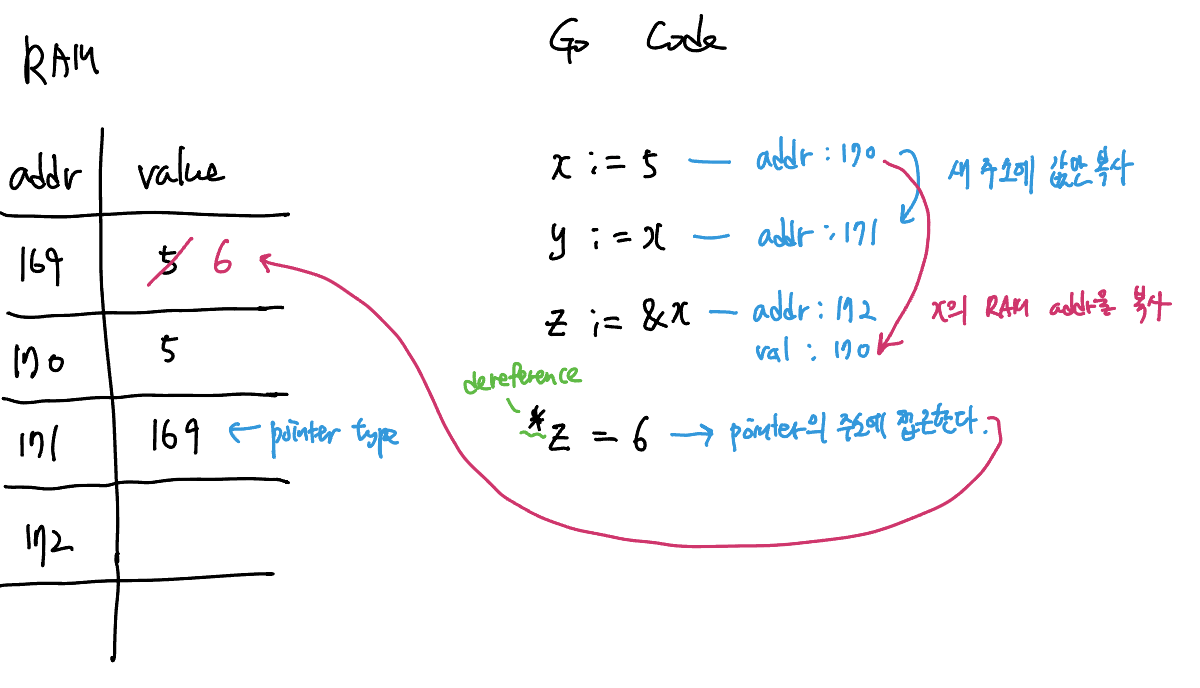 RAM
addr value
169 5 6
170 5
171 169 ← pointer type
172
Go Code
x := 5 — addr : 170
새 주소에 값만 복사
y := x — addr : 171
z := &x — addr : 172
val : 170
x의 RAM addr을 복사
dereference
*z = 6 → pointer의 주소에 접근한다.